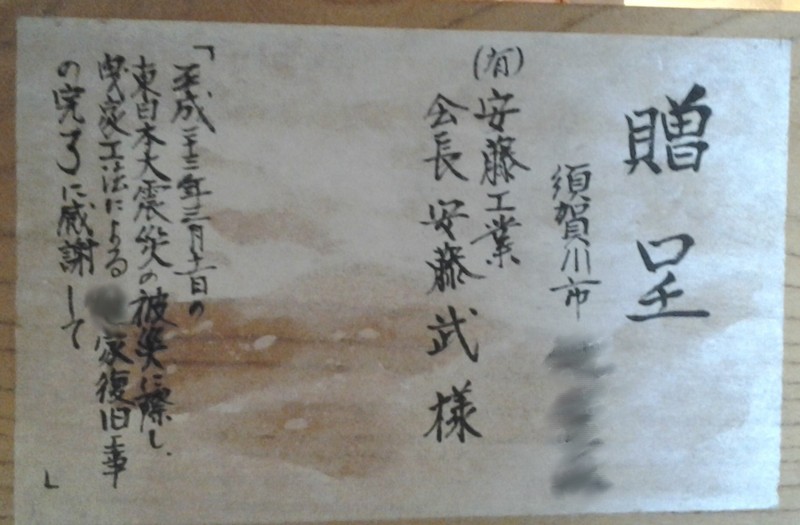 贈呈
須賀川市
(有)安藤工業
会長 安藤武 様
「平成二十三年三月十一日の
東日本大震災の被災に際し、
曳家工法による 家復旧工事
の完了に感謝して」